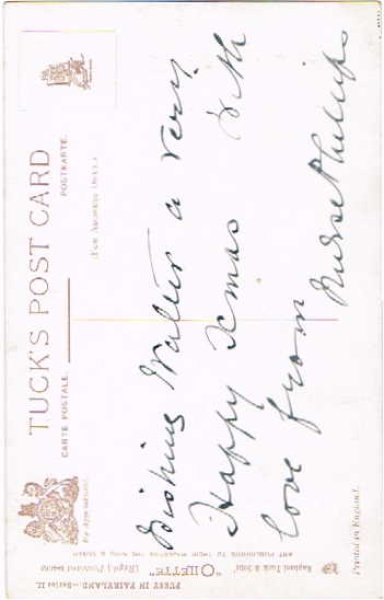 TUCK'S POST CARD
CARTE POSTALE.
POSTKARTE.
By Appointment.
(FOR ADDRESS ONLY.)
Wishing Walter a very
Happy Xmas with
love from
Nurse Phillips
PUSSY IN FAIRYLAND.—Series II.
Raphael Tuck & Sons' "OILETTE" (Regd.) Postcard
ART PUBLISHERS TO THEIR MAJESTIES THE KING & QUEEN
Printed in England.